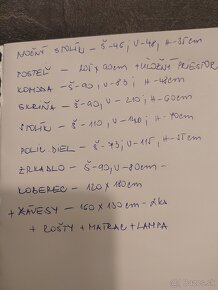 NOČNÝ STOLÍK - Š-45, V-48, H-35cm
POSTEĽ - 205 x 90cm + ÚLOŽNÝ PRIESTOR
KOMODA - Š-90, V-83, H-48cm
SKRIŇA - Š-90, V-210, H-60cm
STOLÍK - Š-110, V-140, H-70cm
POLIC. DIEL - Š-73, V-115, H-35cm
ZRKADLO - Š-90, V-80cm -
KOBEREC - 120 x 180cm
+ ZÁVESY - 160 x 130cm - 2ks
+ ROŠTY + MATRAC + LAMPA